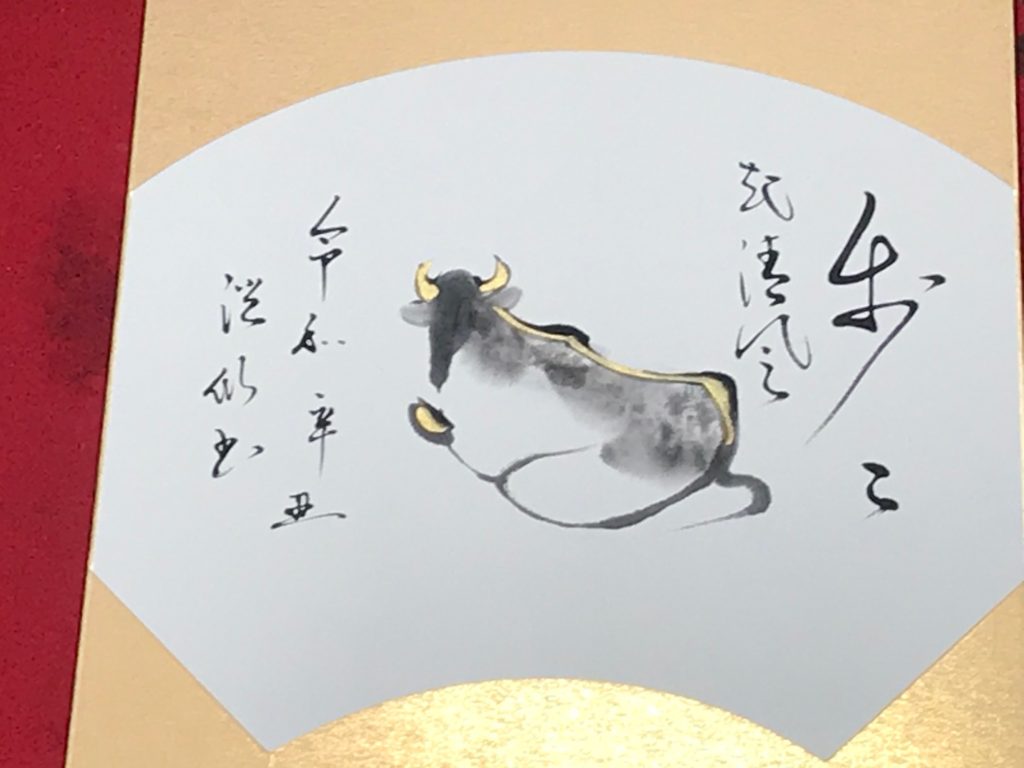 歩々
起清風
令和辛丑
書